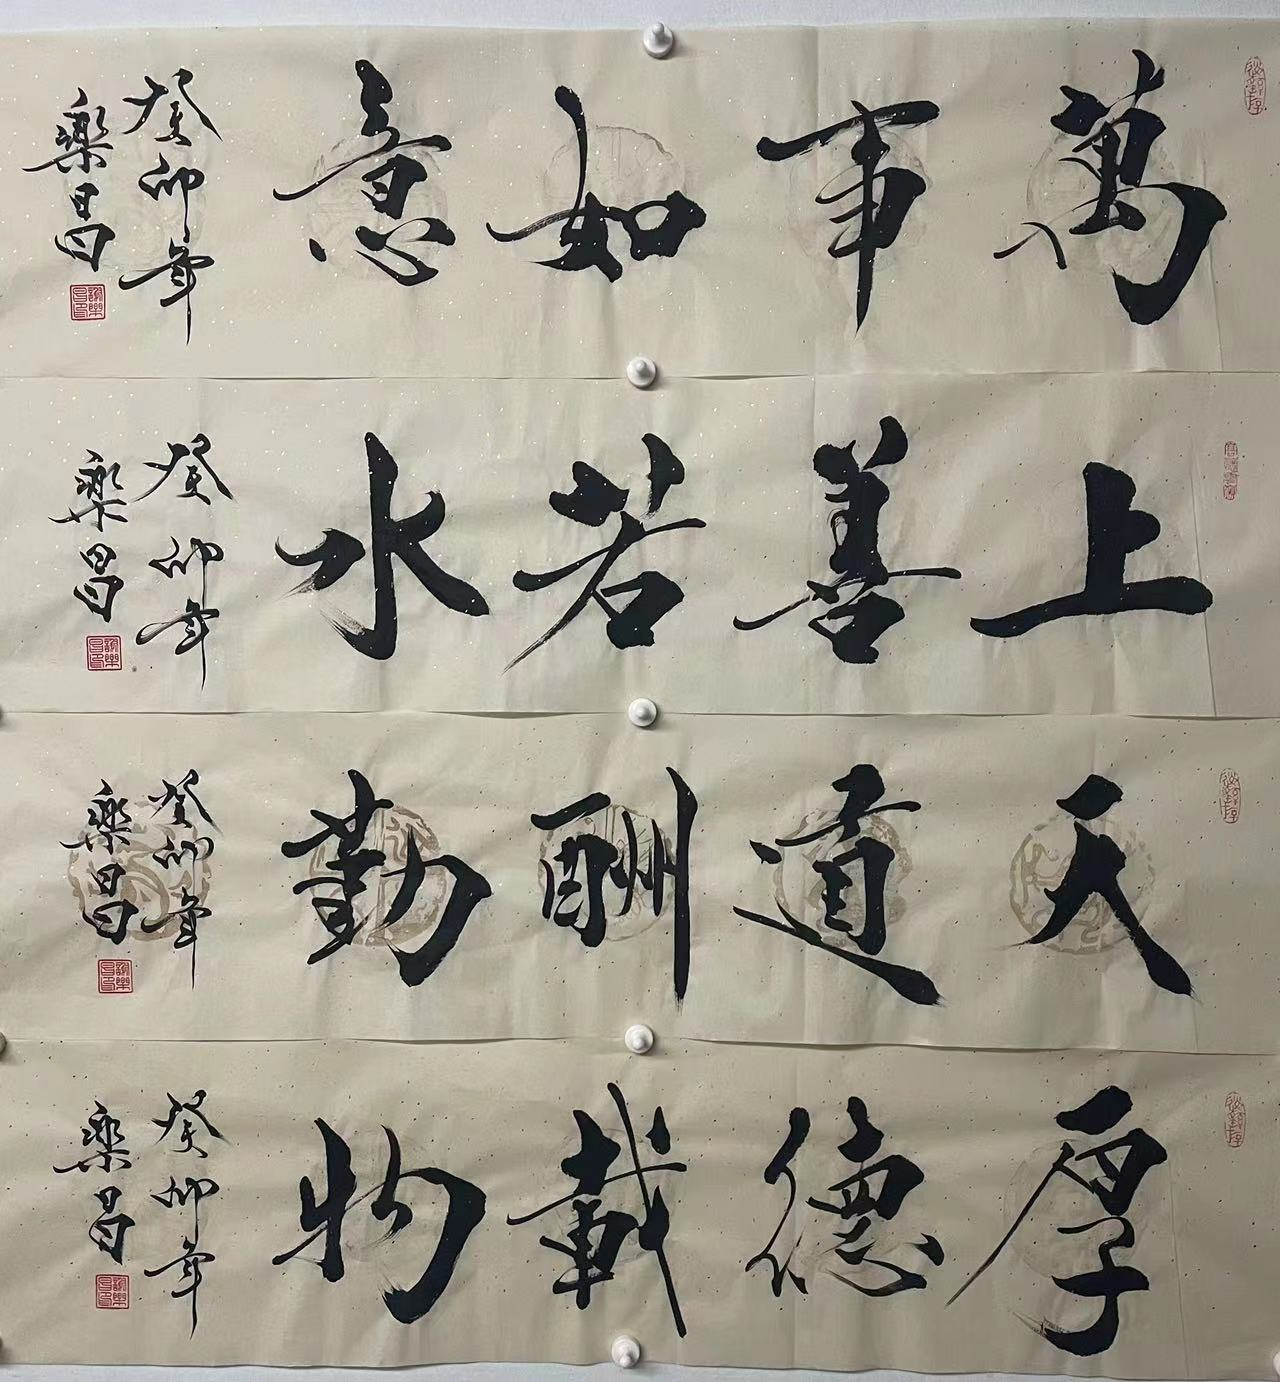 萬事如意
癸卯年
樂昌
上善若水
癸卯年
樂昌
天道酬勤
癸卯年
樂昌
厚德載物
癸卯年
樂昌